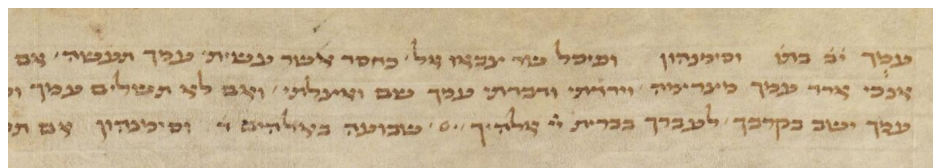 עמך יב בתו וסימנהון ופיכל שר צבאו אל כחסד אשר עשית עמך תעשה אם
אנכי ארד עמך מצרימה וירדתי ודברתי עמך שם ואצלתי ואם לא תשלים עמך
עמך ישב בקרבך לעברך בברית יי אלהיך שבועה באלהים וסימנהון אם